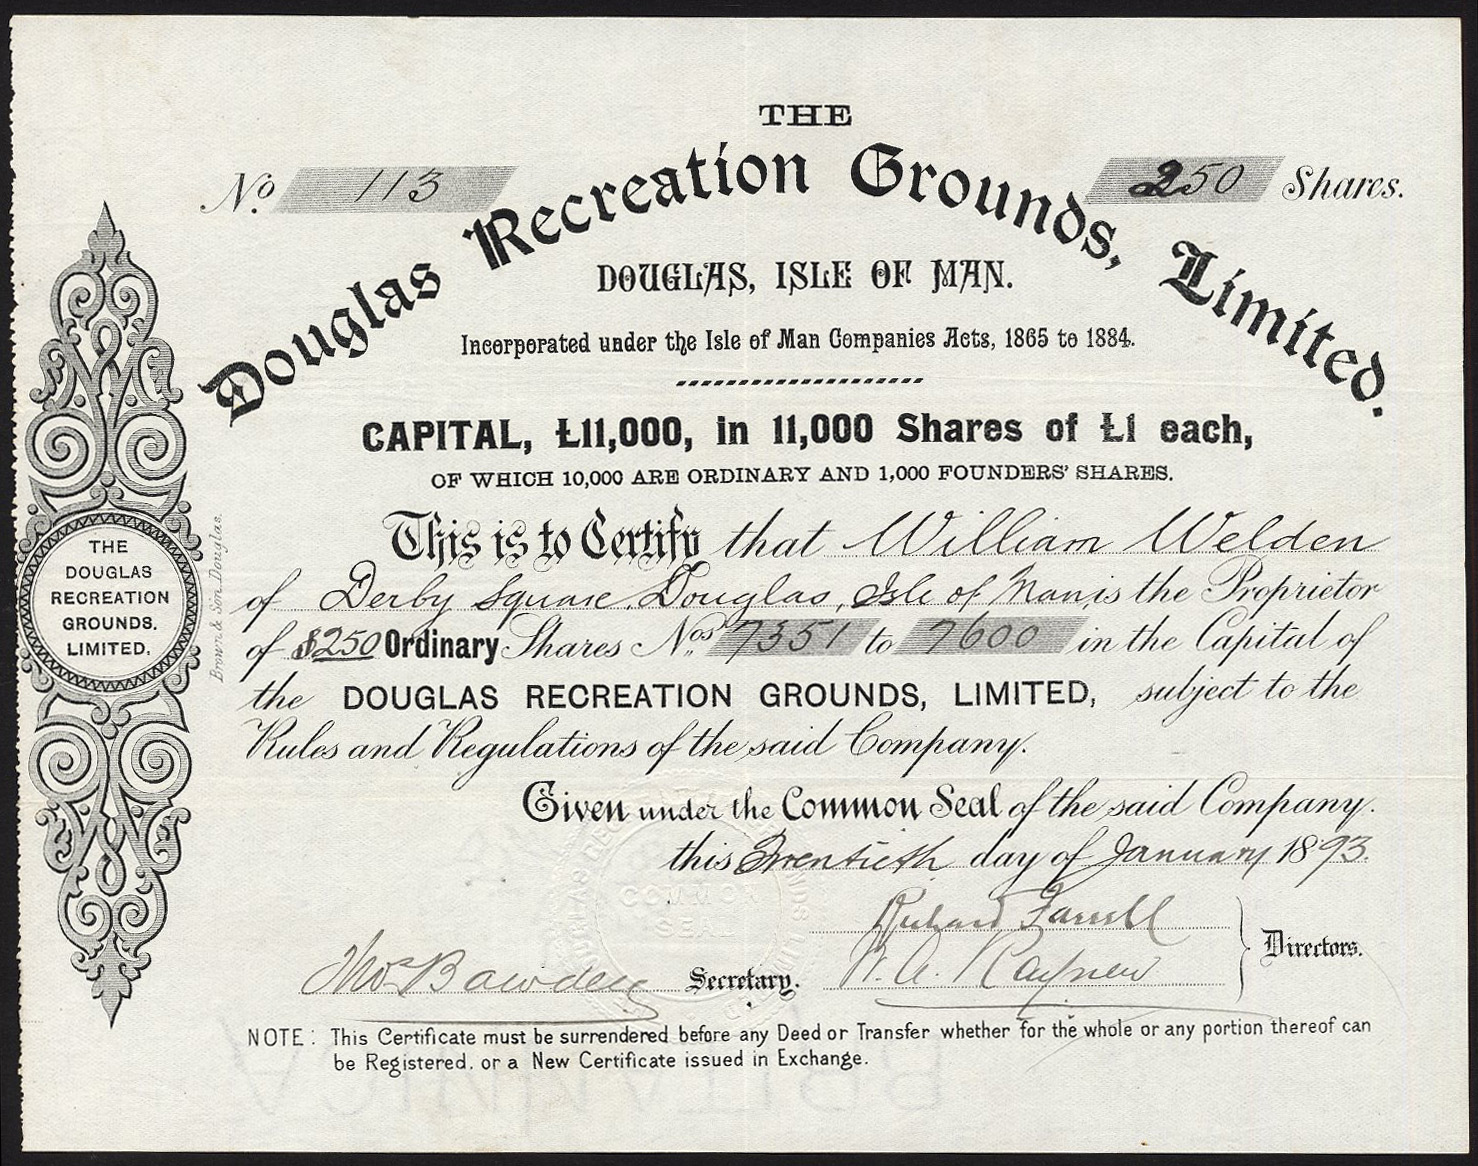 THE
Douglas Recreation Grounds, Limited.
No. 113
250 Shares.
DOUGLAS, ISLE OF MAN.
Incorporated under the Isle of Man Companies Acts, 1865 to 1884.
CAPITAL, £11,000, in 11,000 Shares of £1 each,
OF WHICH 10,000 ARE ORDINARY AND 1,000 FOUNDERS' SHARES.
This is to Certify that William Welden
of Derby Square, Douglas, Isle of Man, is the Proprietor
of 250 Ordinary Shares Nos. 7351 to 7600 in the Capital of
the DOUGLAS RECREATION GROUNDS, LIMITED, subject to the
Rules and Regulations of the said Company.
Given under the Common Seal of the said Company.
this Twentieth day of January 1893.
COMMON
SEAL
Richard Farrell
Thos Bawden Secretary.
Directors.
NOTE: This Certificate must be surrendered before any Deed or Transfer whether for the whole or any portion thereof can
be Registered. or a New Certificate issued in Exchange.
THE
DOUGLAS
RECREATION
GROUNDS.
LIMITED.
Brown & Son. Douglas.